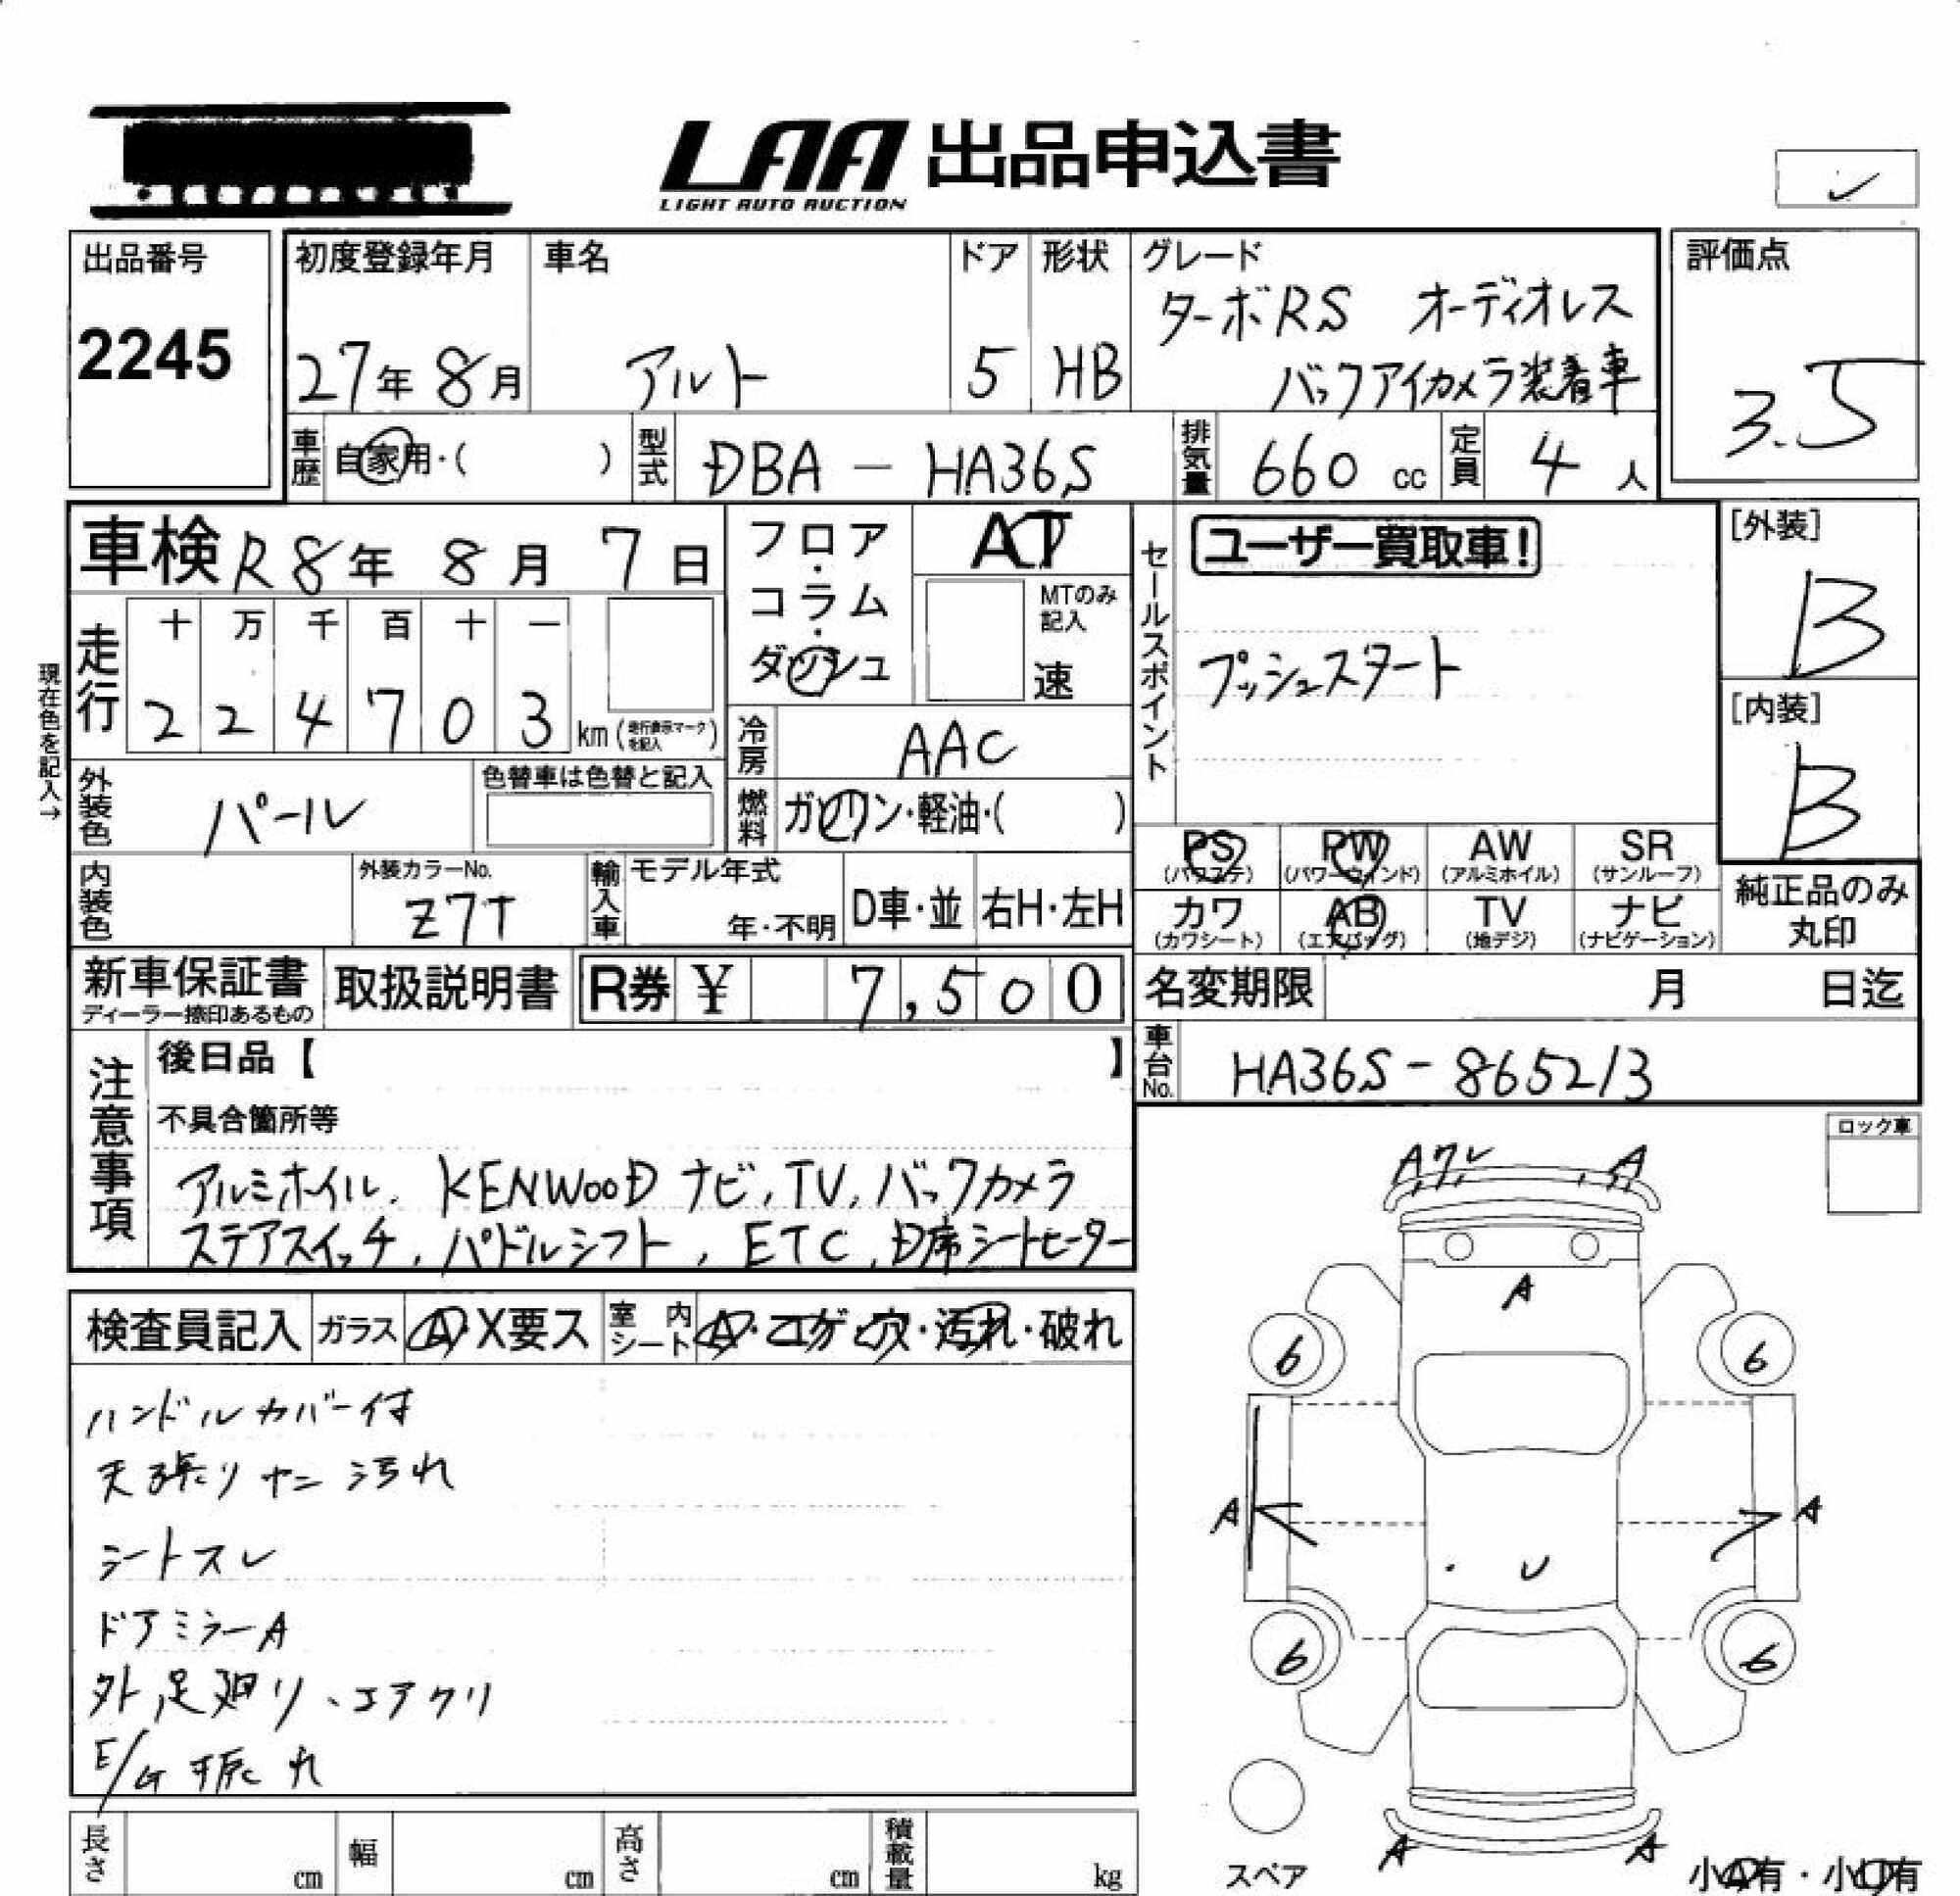 LAA 出品申込書
LIGHT AUTO AUCTION
出品番号
2245
初度登録年月
27年 8月
車名
アルト
ドア
5
形状
HB
グレード
ターボRS オーディオレス
バックアイカメラ装着車
評価点
3.5
車歴 自家用・( )
型式 DBA - HA36S
排気量 660 cc
定員 4 人
車検 R8年 8月 7日
フロア・コラム・ダッシュ
AT
MTのみ記入
速
セールスポイント
ユーザー買取車!
プッシュスタート
[外装]
B
[内装]
B
走行
十 万 千 百 十 一
2 2 4 7 0 3 km (走行表示マークを記入)
現在色を記入→
冷房 AAC
外装色 パール
色替車は色替と記入
燃料 ガソリン・軽油・( )
内装色
外装カラーNo.
Z7T
輸入車
モデル年式
年・不明
D車・並
右H・左H
PS (パワステ)
PW (パワーウインド)
AW (アルミホイル)
SR (サンルーフ)
カワ (カワシート)
AB (エアバッグ)
TV (地デジ)
ナビ (ナビゲーション)
純正品のみ
丸印
新車保証書
ディーラー捺印あるもの
取扱説明書
R券 ¥ 7,500
名変期限 月 日迄
車台No. HA36S - 865213
注意事項
後日品【 】
不具合箇所等
アルミホイル. KENWOOD ナビ, TV, バックカメラ
ステアスイッチ, パドルシフト, ETC, D席シートヒーター
ロック車
検査員記入
ガラス A・X要ス
室内シート A・コゲ・穴・汚れ・破れ
ハンドルカバー付
天張りヤニ汚れ
シートスレ
ドアミラーA
外,足廻り、エアクリ
E/G振れ
A ワレ A
A
6 6
A A
U
6 6
A A
スペア
小A有・小U有
長さ cm
幅 cm
高さ cm
積載量 kg